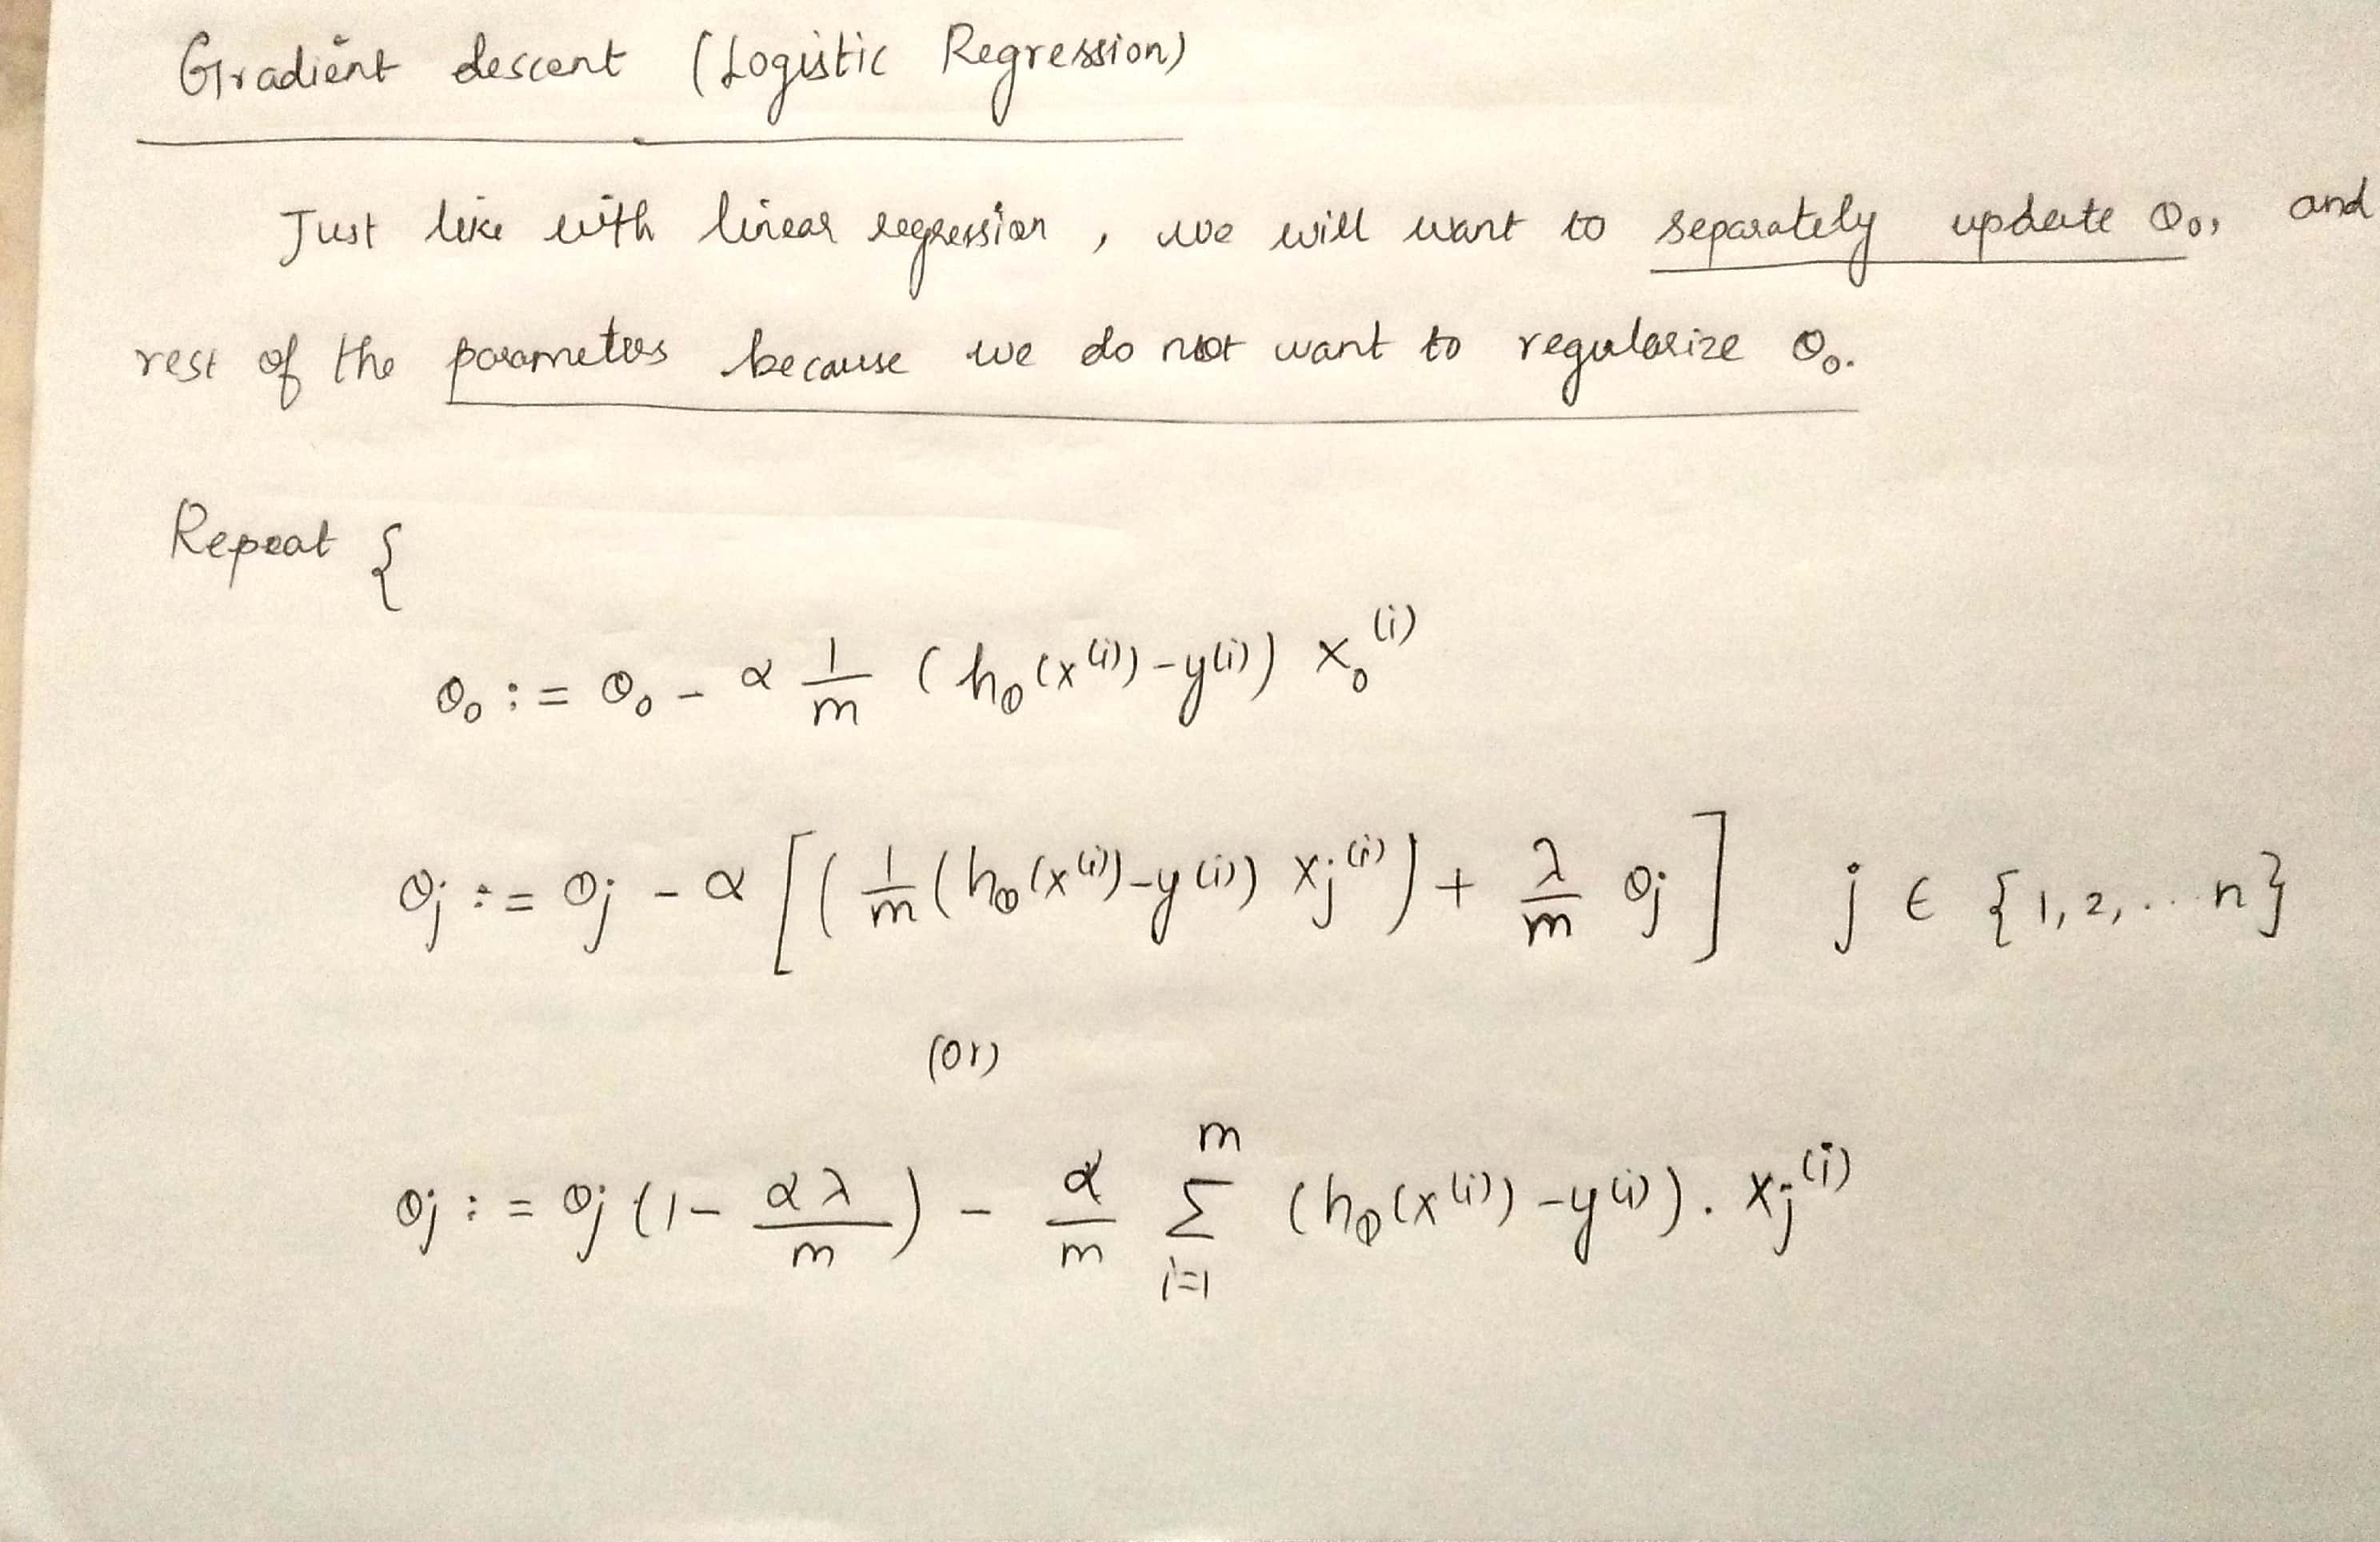 Gradient descent (Logistic Regression)
Just like with linear regression, we will want to separately update θ₀, and
rest of the parameters because we do not want to regularize θ₀.
Repeat {
θ₀ := θ₀ - α 1/m (h_θ(x^(i)) - y^(i)) x₀^(i)
θj := θj - α [(1/m (h_θ(x^(i)) - y^(i)) xj^(i)) + λ/m θj] j ∈ {1, 2, ... n}
(or)
θj := θj (1 - αλ/m) - α/m Σ_{i=1}^{m} (h_θ(x^(i)) - y^(i)) . xj^(i)